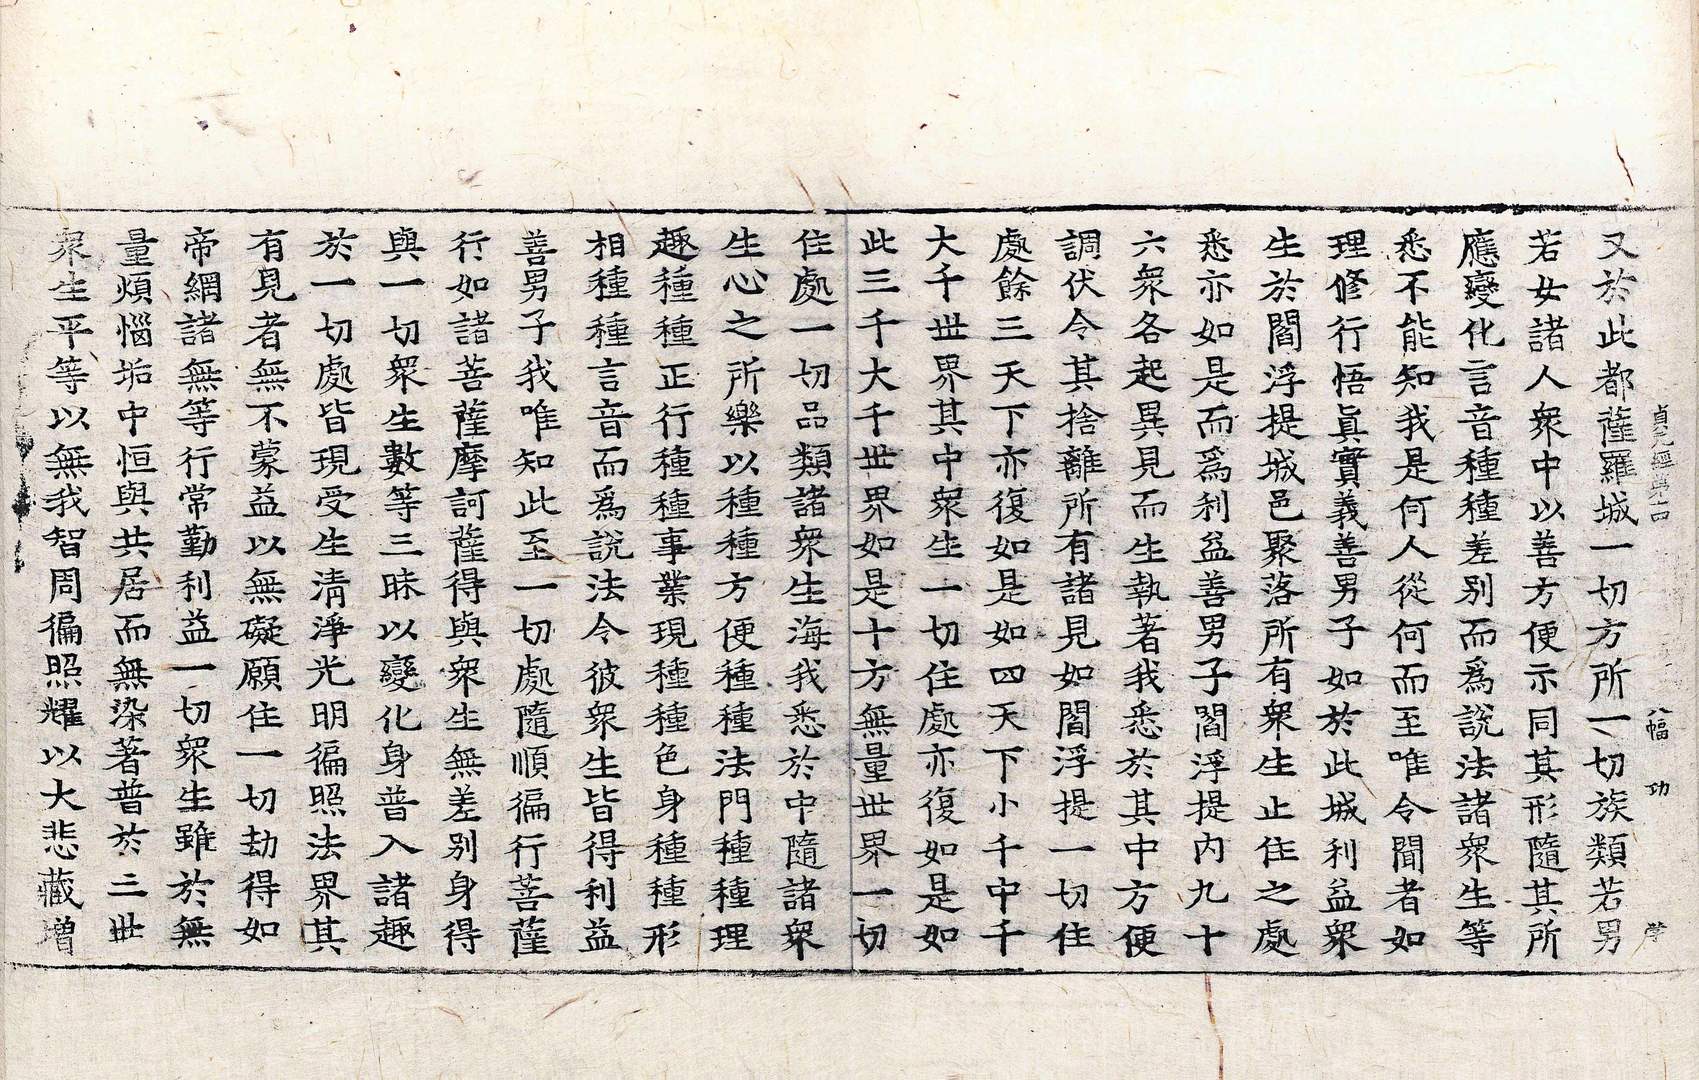 貞元經第十四 八幅 功
又於此都薩羅城一切方所一切族類若男
若女諸人衆中以善方便示同其形隨其所
應變化言音種種差別而爲說法諸衆生等
悉不能知我是何人從何而至唯令聞者如
理修行悟眞實義善男子如於此城利益衆
生於閻浮提城邑聚落所有衆生止住之處
悉亦如是而爲利益善男子閻浮提内九十
六衆各起異見而生執著我悉於其中方便
調伏令其捨離所有諸見如閻浮提一切住
處餘三天下亦復如是如四天下小千中千
大千世界其中衆生一切住處亦復如是如
此三千大千世界如是十方無量世界一切
住處一切品類諸衆生海我悉於中隨諸衆
生心之所樂以種種方便種種法門種種理
趣種種正行種種事業現種種色身種種形
相種種言音而爲說法令彼衆生皆得利益
善男子我唯知此至一切處隨順徧行菩薩
行如諸菩薩摩訶薩得與衆生無差別身得
與一切衆生數等三昧以變化身普入諸趣
於一切處皆現受生清淨光明徧照法界其
有見者無不蒙益以無礙願住一切劫得如
帝網諸無等行常勤利益一切衆生雖於無
量煩惱垢中恒與共居而無染著普於三世
衆生平等以無我智周徧照耀以大悲藏增